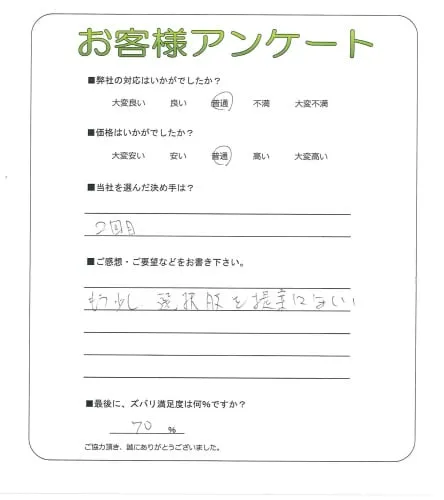 お客様アンケート
■弊社の対応はいかがでしたか？
大変良い 良い 普通 不満 大変不満
■価格はいかがでしたか？
大変安い 安い 普通 高い 大変高い
■当社を選んだ決め手は？
2回目
■ご感想・ご要望などをお書き下さい。
もう少し 選択肢を提案
■最後に、ズバリ満足度は何％ですか？
70 ％
ご協力頂き、誠にありがとうございました。